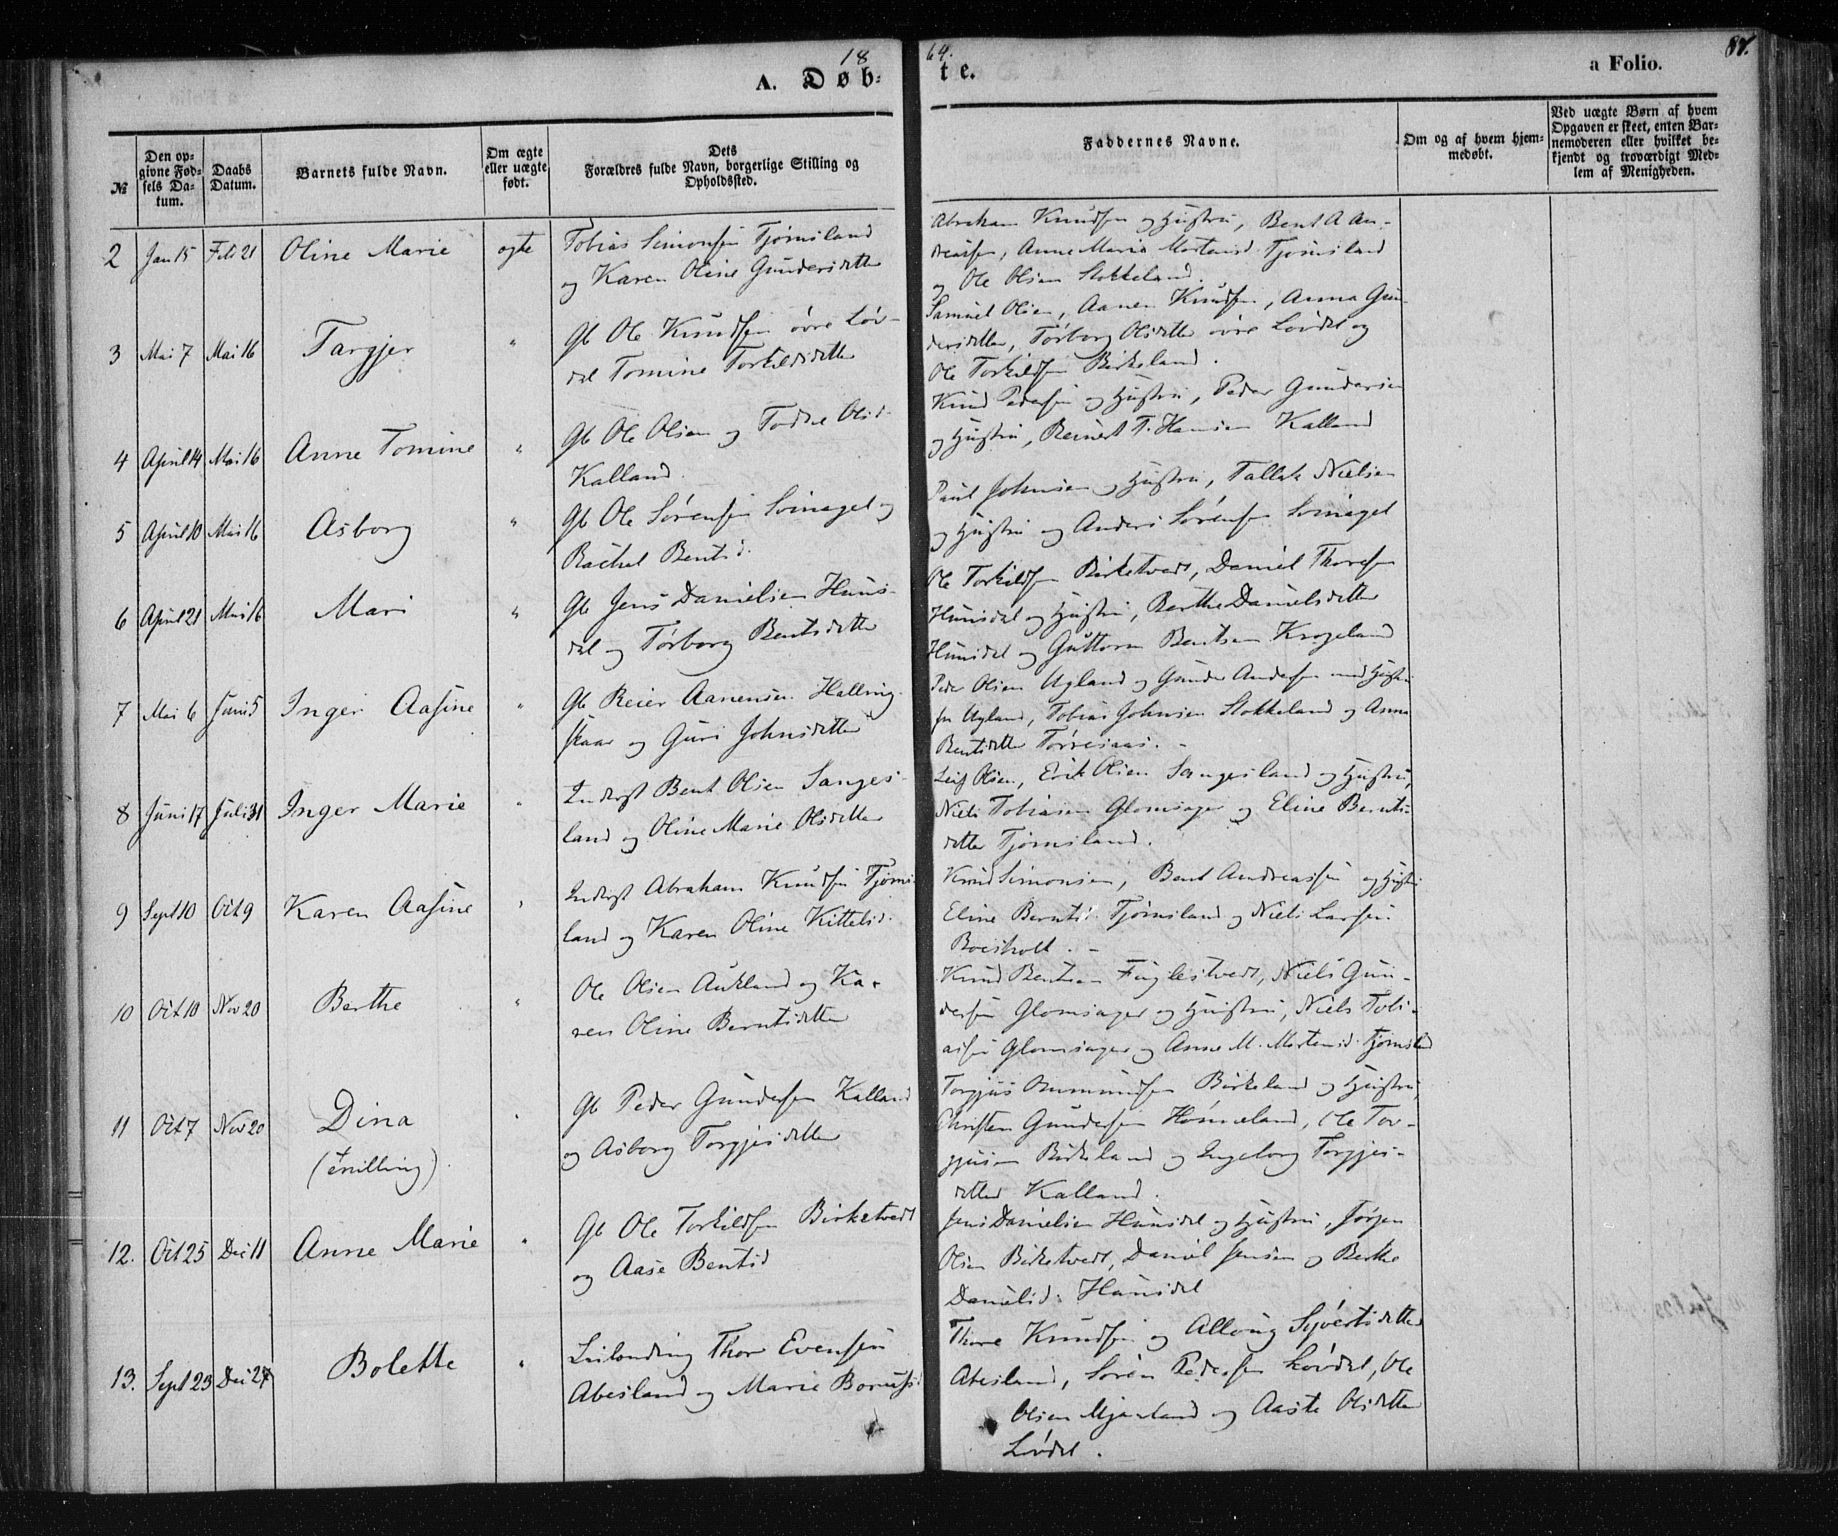 18 64.
87.
A. Døb-
te.
a Folio.
№
Den opgivne Fødsels Datum.
Daabs Datum.
Barnets fulde Navn.
Om ægte eller uægte født.
Dets
Forældres fulde Navn, borgerlige Stilling og Opholdssted.
Faddernes Navne.
Om og af hvem hjemmedøbt.
Ved uægte Børn af hvem Opgaven er skeet, enten Barnemoderen eller hvilket bekjendt og troværdigt Medlem af Menigheden.
2 Jan 15 Feb 21 Oline Marie ægte
Tobias Simonsen Tjomsland
og Karen Oline Gundersdatter
Abraham Knudsen og Hustru, Bent A An-
dreassen, Anne Marie Mortensd. Tjomsland
og Ole Olsen Stokkeland.
3 Mai 7 Mai 16 Targjer "
Gb Ole Knudsen øvre Løv-
dal Tomine Torkildsdatter
Samuel Olsen, Aanen Knudsen, Anna Gun-
dersdatter, Tørborg Olsdatter øvre Løvdal og
Ole Torkildsen Birkeland.
4 April 14 Mai 16 Anne Tomine "
Gb Ole Olsen og Olsd.
Kalland.
Knud Pedersen og Hustru, Peder Gundersen
og Hustru, Reinert T. Hansen Kalland
5 April 10 Mai 16 Asborg "
Gb Ole Sørensen Svinaget og
Rachel Bentsd.
Paul Johnsen og Hustru, Tallak Nielsen
og Hustru og Anders Sørensen Svinaget
6 April 21 Mai 16 Mari "
Gb Jens Danielsen Huns-
dal og Tørborg Bentsdatter
Ole Torkildsen Birketvedt, Daniel Thorsen
Hunsdal og Hustru, Berthe Danielsdatter
Hunsdal og Guttorm Bentsen Krogeland
7 Mai 6 Juni 5 Inger Aasine "
Gb Reier Aanensen Halling-
skaar og Guri Johnsdatter
Peder Olsen Ugland og Gunder Andersen med Hustru
fra Ugland, Tobias Johnsen Stokkeland og Anna
Bentsdatter Tørresaas. -
8 Juni 17 Juli 31 Inger Marie "
Inderst Bent Olsen Sanges-
land og Oline Marie Olsdatter
Leif Olsen, Erik Olsen Sangesland og Hustru,
Niels Tobiasen Glomsager og Eline Bernts-
datter Tjomsland.
9 Sept 10 Oct 9 Karen Aasine "
Inderst Abraham Knudsen Tjoms-
land og Karen Oline Kittelsd.
Knud Simonsen, Bent Andreassen og Hustru
Eline Berntsd. Tjomsland og Niels Larsen
Boiskolt. -
10 Oct 10 Nov 20 Berthe "
Ole Olsen Aukland og Ka-
ren Oline Berntsdatter
Knud Bentsen Fuglestvedt, Niels Gun-
dersen Glomsager og Hustru, Niels Tobi-
asen Glomsager og Anne M. Mortensd. Tjomsld
11 Oct 7 Nov 20 Dina
(tvilling) "
Gb Peder Gundersen Kalland
og Asborg Torgjusdatter
Torgjus Ommundsen Birkeland og Hustru,
Christen Gundersen Homeland, Ole Tor-
gjusen Birkeland og Ingeborg Torgjus-
datter Kalland.
12. Oct 25 Dec 11 Anne Marie "
Gb Ole Torkildsen Birketvedt
og Aase Bentsd
Jens Danielsen Hunsdal og Hustru, Jørgen
Olsen Birketvedt, Daniel Jensen og Berthe
Danielsd: Hunsdal
13. Sept 23 Dec 27 Bolette "
Leilænding Thor Evensen
Abesland og Marie
Thore Knudsen og Allong Syvertsdatter
Abesland, Søren Pedersen Løvdal, Ole
Olsen Mjaaland og Aaste Olsdatter
Løvdal.